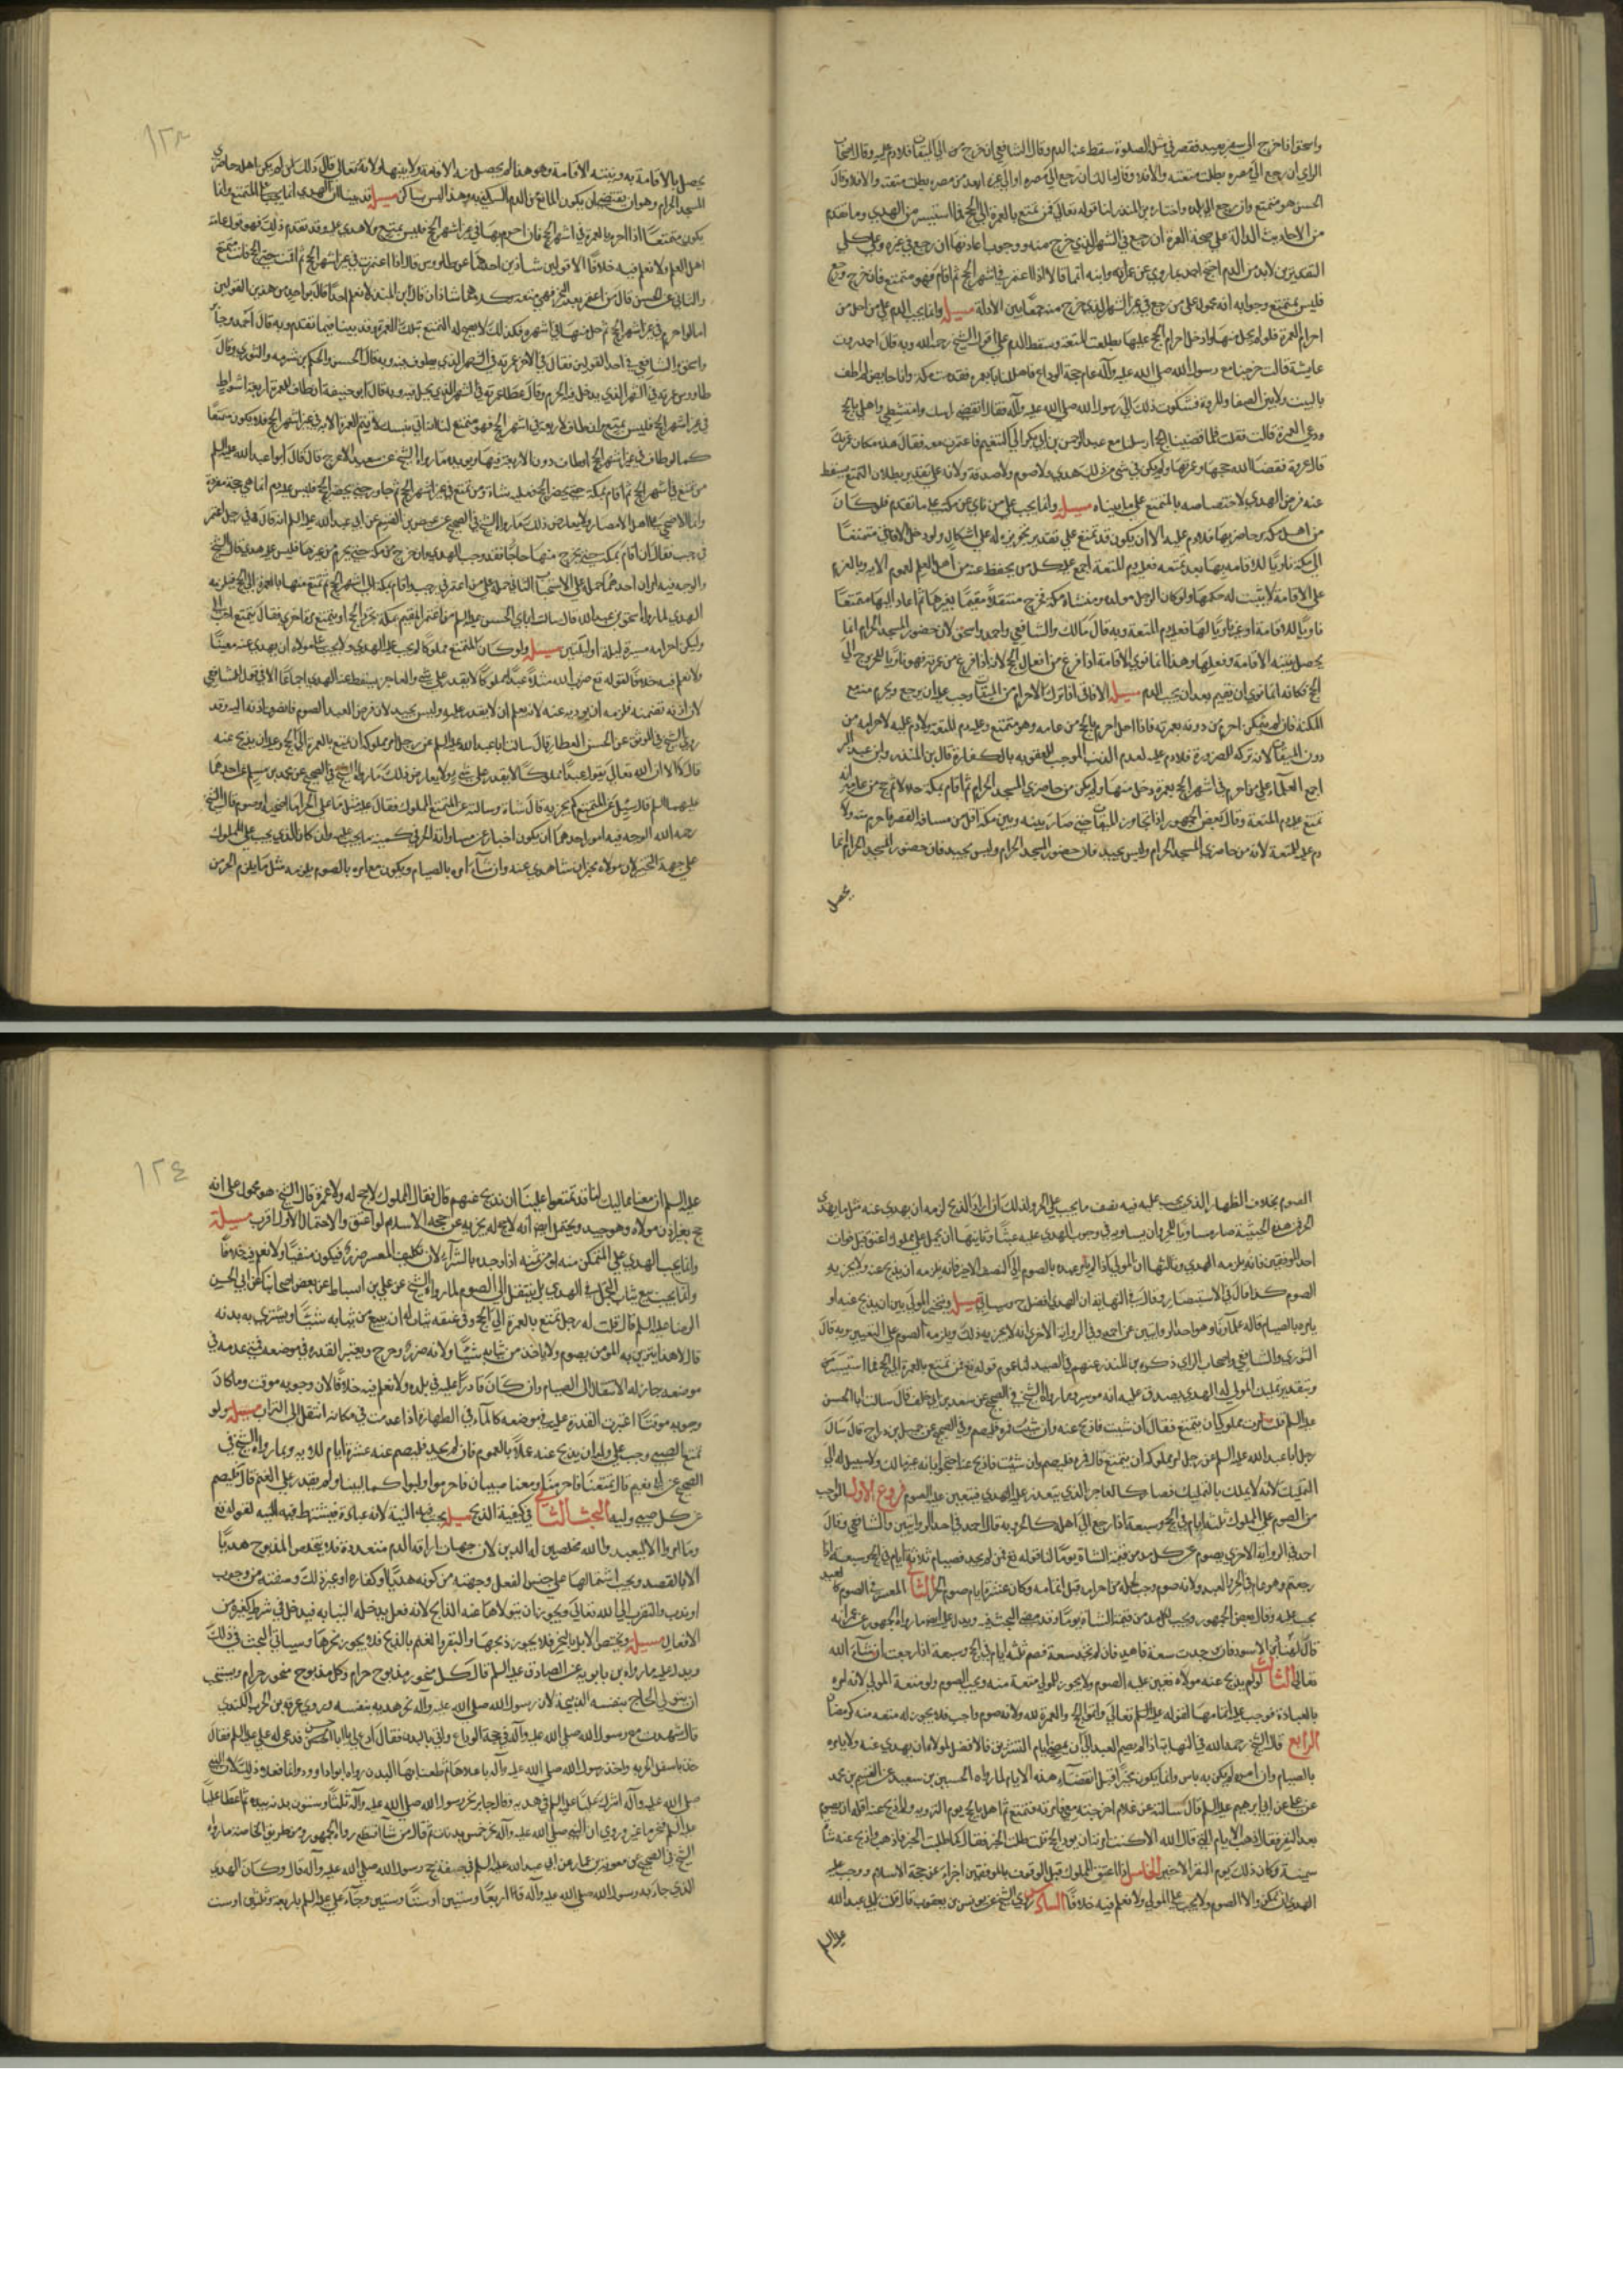 واسحق اذا خرج الى سفر بعيد فقصر في مثل الصلوة سقط عنه الدم وقال الشافعي ان خرج من الى الميقات فلا دم عليه وقال اصحاب
الراي ان رجع الى مصره بطلت متعته والا فلا وقال مالك ان رجع الى مصره او الى غيره ابعد من مصره بطلت متعته والا فلا وقال
الحسن هو متمتع وان رجع الى بلده واختاره بن المنذر لنا قوله تعالى فمن تمتع بالعمرة الى الحج فما استيسر من الهدي وما تقدم
من الاحاديث الدالة على صحة العمرة ان رجع في الشهر الذي خرج منه ووجوب اعادتها ان رجع في غيره وعلى كلي
التقديرين لا بد من الدم احتج احمد بما روي عن عمر انه وابنه انهما قالا اذا اعتمر في اشهر الحج ثم اقام فهو متمتع فان خرج ورجع
فليس بمتمتع وجوابه انه محمول على من رجع في غير الشهر الذي خرج منه جمعا بين الادلة مسيلة وانما يجب الدم على من احل من
احرام العمرة فلو لم يحل منها وادخل احرام الحج عليها بطلت المتعة وسقط الدم على اقوال الشيخ رحمه الله وبه قال احمد روت
عايشة قالت خرجنا مع رسول الله صلى الله عليه وآله عام حجة الوداع فاهللنا بعمرة فقدمت مكة وانا حايض لم اطف
بالبيت ولا بين الصفا والمروة فشكوت ذلك الى رسول الله صلى الله عليه وآله فقال انقضي راسك وامتشطي واهلي بالحج
ودعي العمرة قالت ففعلت فلما قضينا الحج ارسلنا مع عبد الرحمن بن ابي بكر الى التنعيم فاعتمرت معه فقال هذه مكان عمرتك
قال عروة فقضى الله حجها وعمرتها ولم يكن في شي من ذلك هدي ولا صوم ولا صدقة ولانه على تقدير بطلان التمتع يسقط
عنه فرض الهدي لاختصاصه بالمتمتع على ما بيناه مسيلة وانما يجب على من ناي عن مكة على ما تقدم فلو كان
من اهل مكة ومن حاضريها فلا دم عليه الا ان يكون قد تمتع على تقدير تجويزه له على اشكال ولو دخل الافاقي متمتعا
الى مكة ناويا للاقامة بها بعد تمتعه فعليه دم المتعة اجمع عليه كل من يحفظ عنه من اهل العلم لعموم الاية وبالعزم
على الاقامة لا يثبت له حكمها ولو كان الرجل مولده ومنشاه مكة فخرج متنقلا مقيما بغيرها ثم اعاد اليها متمتعا
ناويا للاقامة او غير ناو لها فعليه دم المتعة وبه قال مالك والشافعي واحمد واسحق لان حضور المسجد الحرام انما
يحصل بنية الاقامة وفعلها وهذا انما نوي الاقامة اذا فرغ من افعال الحج لانه اذا فرغ من عمرته فهو ناو للخروج الى
الحج فكانه انما نوى ان يقيم بعد ان يجب الدم مسيلة الافاقي اذا ترك الاحرام من الميقات وجب عليه ان يرجع ويحرم منه مع
المكنة فان لم يتمكن احرم من دونه بعمرة فاذا احل احرم بالحج من عامه وهو متمتع وعليه دم المتعة ولا دم عليه لاحرامه من
دون الميقات لانه تركه للضرورة فلا دم عليه لعدم الذنب الموجب للعقوبة بالكفارة قال بن المنذر وابن عبد البر
اجمع العلماء على من احرم في اشهر الحج بعمرة وحل منها ولم يكن من حاضري المسجد الحرام ثم اقام بمكة حلالا ثم حج من عامه انه
تمتع عليه دم المتعة وقال بعض الجمهور اذا تجاوز الميقات حتى صار بينه وبين مكة اقل من مسافة القصر فاحرم منه ولا
دم عليه للمتعة لانه من حاضري المسجد الحرام وليس بجيد فان حضور المسجد الحرام انما
يحصل
يحصل بالاقامة به وبنية الاقامة وهو هنا لم يحصل منه الاقامة ولا نيتها ولانه تعالى قال ذلك لمن لم يكن اهله حاضري
المسجد الحرام وهو ان يقتضي ان يكون المانع من الدم السكنى به وهذا ليس بساكن مسيلة قد بينا ان الهدي انما يجب على المتمتع وانما
يكون متمتعا اذا احرم بالعمرة في اشهر الحج فان احرم بها في غير اشهر الحج فليس بمتمتع ولا هدي عليه وقد تقدم ذلك فهو قول عامة
اهل العلم ولا نعلم فيه خلافا الا قولين شاذين احدهما عن طاووس قال اذا اعتمرت في غير اشهر الحج ثم اقمت حتى الحج فانت متمتع
والثاني عن الحسن قال من اعتمر بعد النحر فهي متعة وكلاهما شاذان قال ابن المنذر لا نعلم احدا قال بواحد من هذين القولين
اما لو احرم في غير اشهر الحج ثم حل منها في اشهره فكذلك لا يصح له التمتع بتلك العمرة وقد بينا فيما تقدم وبه قال احمد وجابر
واسحق والشافعي في احد القولين فقال في الاخر عمرته في الشهر الذي يطوف فيه وبه قال الحسن والحكم بن شبرمة والثوري وقال
طاووس عمرته في الشهر الذي يدخل فيه الحرم وقال عطا عمرته في الشهر الذي يحل فيه وبه قال ابو حنيفة ان طاف للعمرة اربعة اشواط
في غير اشهر الحج فليس بمتمتع وان طاف الاربعة في اشهر الحج فهو متمتع
من تمتع في اشهر الحج ثم اقام بمكة حتى يحضر الحج فعليه شاة ومن تمتع في غير اشهر الحج ثم جاور حتى يحضر الحج فليس عليه دم انما هي حجة مفردة
وانما الاضحى على اهل الامصار ولا يعارض ذلك ما رواه الشيخ في الصحيح عن عيص بن القسم عن ابي عبد الله عليه السلام انه قال في رجل اعتمر
في رجب فقال ان اقام بمكة حتى يخرج منها حاجا فقد وجب الهدي وان خرج من مكة حتى يحرم من غيرها فليس عليه هدي قال الشيخ
ولكن احرامه مسيرة ليلة او ليلتين مسيلة ولو كان المتمتع مملوكا لم يجب عليه الهدي ولا يجب على مولاه ان يهدي عنه معينا
ولا نعلم فيه خلافا لقوله تع ضرب الله مثلا عبدا مملوكا لا يقدر على شي
قال لا ان الله تعالى يقول عبدا مملوكا لا يقدر على شي ولا يعارض ذلك ما رواه الشيخ في الصحيح عن محمد بن مسلم عن احدهما
عليهما السلم قال سئل عن المتمتع كم يجزيه قال شاة وسالته عن المتمتع المملوك فقال عليه مثل ما على الحر اما اضحية او صوم قال الشيخ
رحمه الله الوجه فيه امور احدهما ان يكون اخبارا عن مساواته الحر في كمية ما يجب عليه وان كان الذي يجب على المملوك
على جهة التخيير لان مولاه مخير ان شا اهدى عنه وان شاء امره بالصيام ويكون مع امره بالصوم يلزمه مثل ما يلزم الحر من
١٢٣
الصوم بخلاف الظهار الذي يجب عليه فيه نصف ما يجب على الحر ولذلك ان اراد الذبح لزمه ان يهدي عنه مثل ما يهدي
احد الموقفين فانه يلزمه الهدي وثالثها ان المولى اذا لم يامر عبده بالصوم الى النفر الاخير فانه يلزمه ان يذبح عنه ولا يجزيه
الصوم كذا قال في الاستبصار وقال في النهاية ان الهدي افضل ح وسياتي مسيلة ويتخير المولى بين ان يذبح عنه او
يامره بالصيام قاله علماؤنا وهو احد الروايتين عن احمد وفي الرواية الاخرى انه لا يجزيه ذلك ويلزمه الصوم على التعيين وبه قال
الثوري والشافعي واصحاب الراي ذكره بن المنذر عنهم في الصيد لنا عموم قوله تع فمن تمتع بالعمرة الى الحج فما استيسر من
وبتقدير تمليك المولى له الهدي يصدق عليه انه موسر وما رواه الشيخ في الصحيح عن سعد بن ابي خلف قال سالت ابا الحسن
عليه السلم قلت امرت مملوكي ان يتمتع فقال ان شئت فاذبح عنه وان شئت فمره فليصم وفي الصحيح عن جميل بن دراج قال سال
رجل ابا عبد الله عليه السلم عن رجل امر مملوكه ان يتمتع قال فمره فليصم وان شئت فاذبح عنه
التمليك لانه لا يملك بالتمليك فصار كالعاجز الذي يتعذر عليه الهدي فيتعين عليه الصوم فروع الاول الواجب
من الصوم على المملوك ثلثة ايام في الحج وسبعة اذا رجع الى اهله كالحر وبه قال احمد في احد الروايتين والشافعي وقال
احمد في الرواية الاخرى يصوم عن كل مد من قيمة الشاة يوما لنا قوله تع فمن لم يجد فصيام ثلاثة ايام في الحج وسبعة اذا
رجعتم وهو عام في الحر والعبد ولانه صوم وجب لحله من احرامه قبل اتمامه وكان عشرة ايام صوم الحر الثاني المعسر في الصوم كالعبد
تعالى الثالث لو لم يذبح عنه مولاه تعين عليه الصوم ولا يجوز للمولى منعه منه
الرابع قال الشيخ رحمه الله في النهاية اذا لم يصم العبد الى ان يمضي ايام التشريق فالافضل لمولاه ان يهدي عنه ولا يامره
بالصيام وان امره لم يكن به باس وانما يكون مخيرا قبل انقضاء هذه الايام لما رواه الحسين بن سعيد عن القسم بن محمد
عن علي عن ابي ابرهيم عليه السلم قال سالته عن غلام اخرجته معي فامرته فتمتع ثم اهل بالحج يوم التروية ولم اذبح عنه افله ان يصوم
سمينة وكان ذلك يوم النفر الاخير الخامس اذا اعتق المملوك قبل الوقوف بالموقفين اجزاه عن حجة الاسلام ووجب عليه
الهدي ان تمكن والا الصوم ولا يجب على المولى ولا نعلم فيه خلافا السادس روى الشيخ عن يونس بن يعقوب قال قلت لابي عبد الله
عليه السلم
عليه السلم ان معنا مماليك لنا قد تمتعوا علينا ان نذبح عنهم قال فقال المملوك لا حج له ولا عمرة قال الشيخ هو محمول على انه
حج بغير اذن مولاه وهو جيد ويحتمل ايضا انه لا حج له يجزيه عن حجة الاسلام لو اعتق والاحتمال الاول اقرب مسيلة
وانما يجب الهدي على المتمكن منه او من ثمنه اذا وجده بالشراء لان تكليف المعسر ضرر فيكون منفيا ولا نعلم فيه خلافا
الرضا عليه السلم قال قلت له رجل تمتع بالعمرة الى الحج وفي عيبته ثياب له ان يبيع من ثيابه شيئا ويشتري به بدنه
قال لا هذا يتزين به المؤمن يصوم ولا ياخذ من ثيابه شيئا ولانه ضرر وحرج ويعتبر القدرة في موضعه فمتى عدمه في
موضعه جاز له الانتقال الى الصيام وان كان قادرا عليه في بلده ولا نعلم فيه خلافا لان وجوبه موقت وما كان
وجوبه موقتا اعتبرت القدرة عليه في موضعه كالماء في الطهارة اذا عدمت في مكانه انتقل الى التراب مسيلة ولو
تمتع الصبي وجب على وليه ان يذبح عنه عملا بالعموم فان لم يجد فليصم عنه عشرة ايام للاية وبما رواه الشيخ في
عن كل صبي وليه البحث الثاني في كيفية الذبح مسيلة يجب فيه النية لانه عبادة فيشترط فيه النية لقوله تع
وما امروا الا ليعبدوا الله مخلصين له الدين لان جهات اراقة الدم متعددة فلا يتخلص المذبوح هديا
الا بالقصد ويجب اشتمالها على جنس الفعل وجهته من كونه هديا او كفارة او غير ذلك وصفته من وجوب
او ندب والتقرب الى الله تعالى ويجوز ان يتولاها عنه الذابح لانه فعل يدخله النيابة فيدخل في شرطه كغيره من
الافعال مسيلة ويختص الابل بالنحر فلا يجوز ذبحها والبقر والغنم بالذبح فلا يجوز نحرها وسياتي البحث في ذلك
ويدل عليه ما رواه بن بابويه عن الصادق عليه السلم قال كل منحور مذبوح حرام وكل مذبوح منحور حرام ويستحب
ان يتولى الحاج بنفسه الذبيحة لان رسول الله صلى الله عليه وآله نحر هديه بنفسه وروى غرفة بن الحرث الكندي
قال شهدت مع رسول الله صلى الله عليه وآله في حجة الوداع واتي بالبدن فقال ادع لي ابا حسن فدعى له علي عليه السلم فقال
خذ باسفل الحربة واخذ رسول الله صلى الله عليه وآله باعلاها ثم طعنا بها البدن رواه ابو داود وانما فعلا ذلك لان النبي
صلى الله عليه وآله اشرك عليا عليه السلم في هديه وقال جابر نحر رسول الله صلى الله عليه وآله ثلثا وستين بدنة بيده ثم اعطا عليا
عليه السلم فنحر ما غبر وروي ان النبي صلى الله عليه وآله نحر خمس بدنات ثم قال من شا اقتطع رواه الجمهور ومن طريق الخاصة ما رواه
الشيخ في الصحيح عن معوية بن عمار عن ابي عبد الله عليه السلم في صفة حج رسول الله صلى الله عليه وآله قال وكان الهدي
الذي جاء به رسول الله صلى الله عليه وآله اربعا وستين او ستا وستين وجاء علي عليه السلم باربعة وثلثين او ست
١٢٤